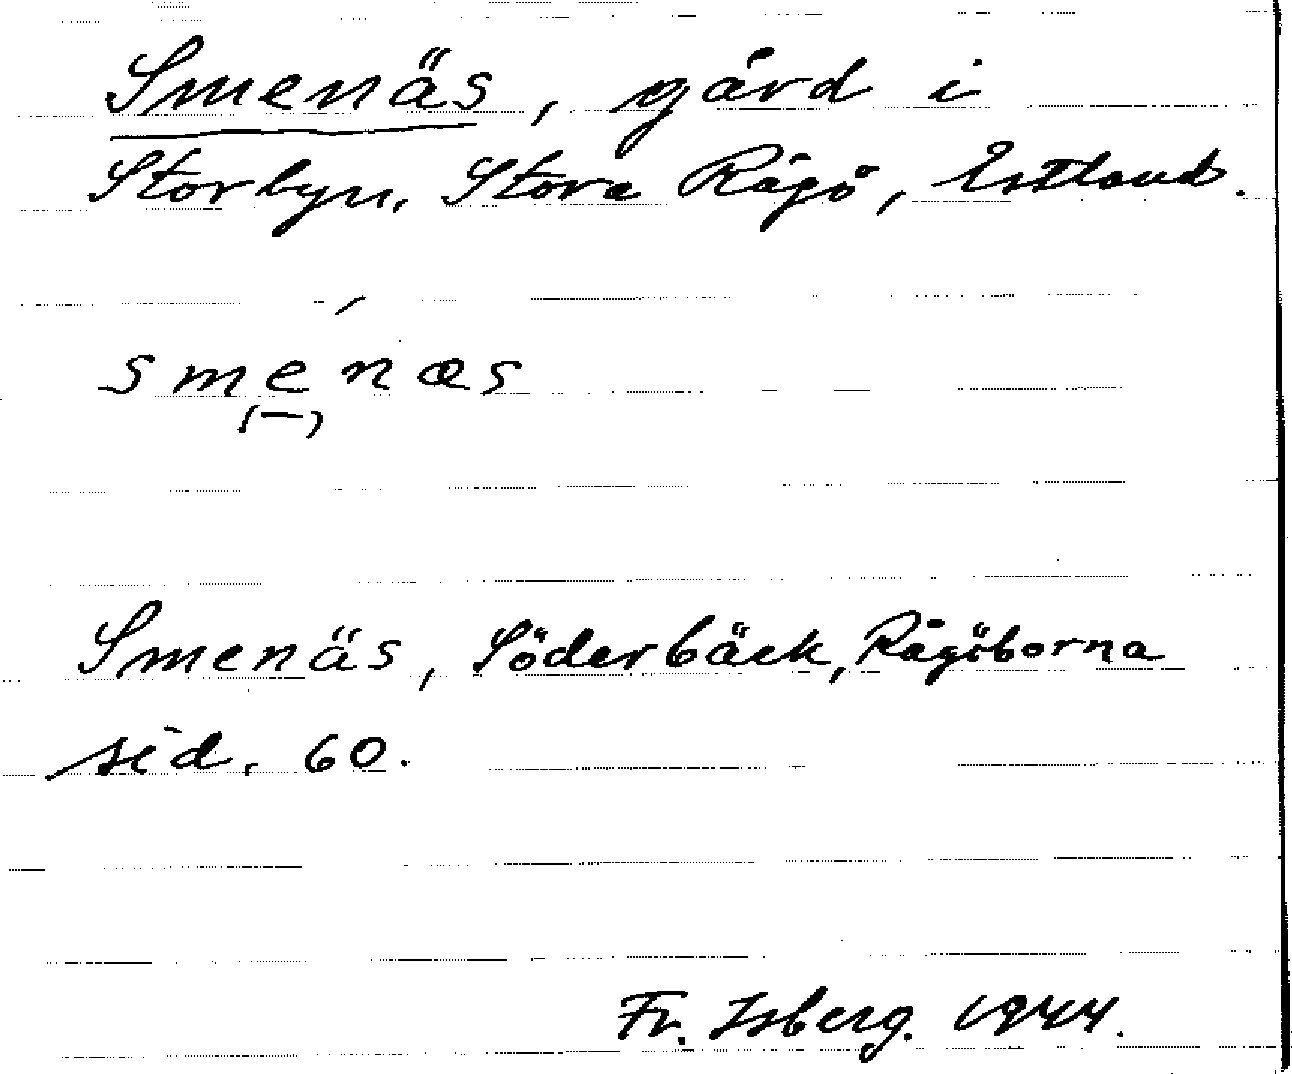 Smenäs, gård i
Storbyn, Stora Rågö, Estland.
smenæs
(—)
Smenäs, Söderbäck, Rågöborna
sid. 60.
Fr. Isberg. 1944.